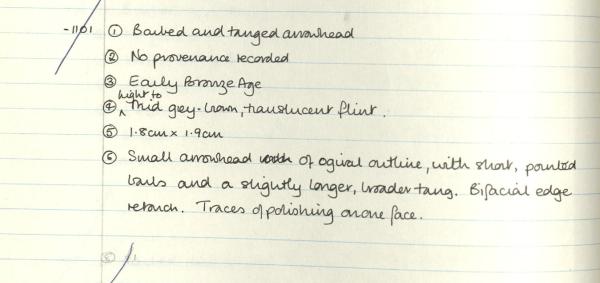 -1101 ① Barbed and tanged arrowhead
② No provenance recorded
③ Early Bronze Age
light to
④ ^ mid grey-brown, translucent flint.
⑤ 1.8cm x 1.9cm
⑥ Small arrowhead of ogival outline, with short, pointed
barbs and a slightly longer, broader tang. Bifacial edge
retouch. Traces of polishing on one face.